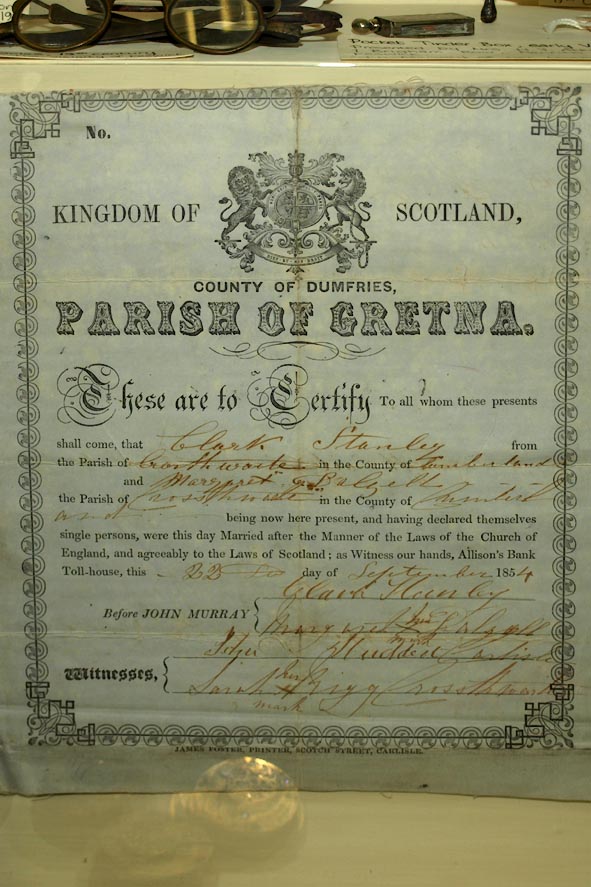 Pocket Tinder Box, early
Presented by
No.
KINGDOM OF SCOTLAND,
COUNTY OF DUMFRIES,
PARISH OF GRETNA.
These are to Certify To all whom these presents
shall come, that Clark Stanley from
the Parish of Crosthwaite in the County of Cumberland
and Margaret
the Parish of Crosthwaite in the County of Cumberl
and being now here present, and having declared themselves
single persons, were this day Married after the Manner of the Laws of the Church of
England, and agreeably to the Laws of Scotland; as Witness our hands, Allison's Bank
Toll-house, this 22 day of September 1854
Clark Stanley
Before JOHN MURRAY
Margaret
mark
John Carlisle
Witnesses,
her
Sarah X Rigg Crosthwaite
mark
JAMES FOSTER, PRINTER, SCOTCH STREET, CARLISLE.